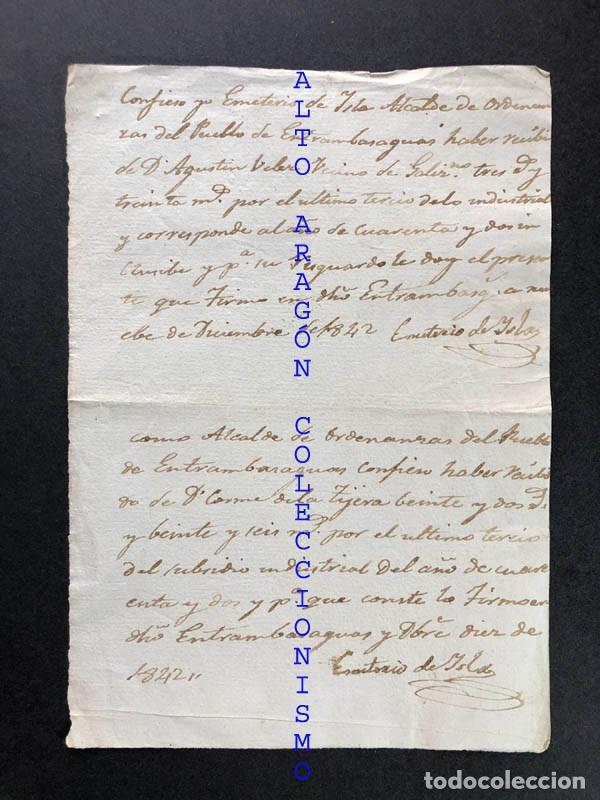 Confieso yo Emeterio de Isla Alcalde de Ordenan
zas del Pueblo de Entrambasaguas haber recibi
de Dn Agustin Velez Vecino de tres Rs y
treinta ms por el ultimo tercio de lo industrial
y corresponde al año de cuarenta y dos in
clusibe y pa su Resguardo le doy el presen
te que Firmo en dho Entrambasgs a nu
ebe de Diciembre de 1842 Emeterio de Isla
como Alcalde de Ordenanzas del Pueblo
de Entrambasaguas confieso haber recibi
do de Dn Cosme de la Tijera beinte y dos Rs
y beinte y seis ms por el ultimo tercio
del subsidio industrial del año de cuare
enta y dos y pa que conste lo Firmo en
dho Entrambasaguas y Dbre diez de
1842 Emeterio de Isla
ALTO ARAGÓN COLECCIONISMO
todocoleccion